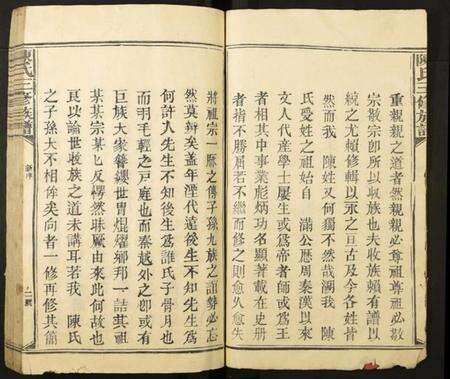 陳氏三修族譜
重親親之道者然親親必尊祖尊祖必敬
宗敬宗即所以收族也夫收族賴有譜以
統之尤賴修輯以永之亘古及今各姓皆
然而我 陳姓又何獨不然哉溯我 陳
氏受姓之祖始自 滿公歷周秦漢以來
文人代產學士屢生或為帝者師或為王
者相其中事業彪炳功名顯著載在史冊
者指不勝屈若不繼而修之則愈久愈失
將祖宗一脈之傳子孫九族之誼勢必忘
然莫辨矣蓋年湮代遠後生不知先生為
何許人先生不知後生為誰氏子骨月也
而明毛輕之戸庭也而秦越外之卽或有
巨族大家簪纓世胄焜燿鄉邦一詰其祖
某某宗某匕反愕然昧厥由來此何故也
良以論世收族之道未講耳若我 陳氏
之子孫大不相侔矣向者一修再修其簡
陳氏三修族譜
新序
二